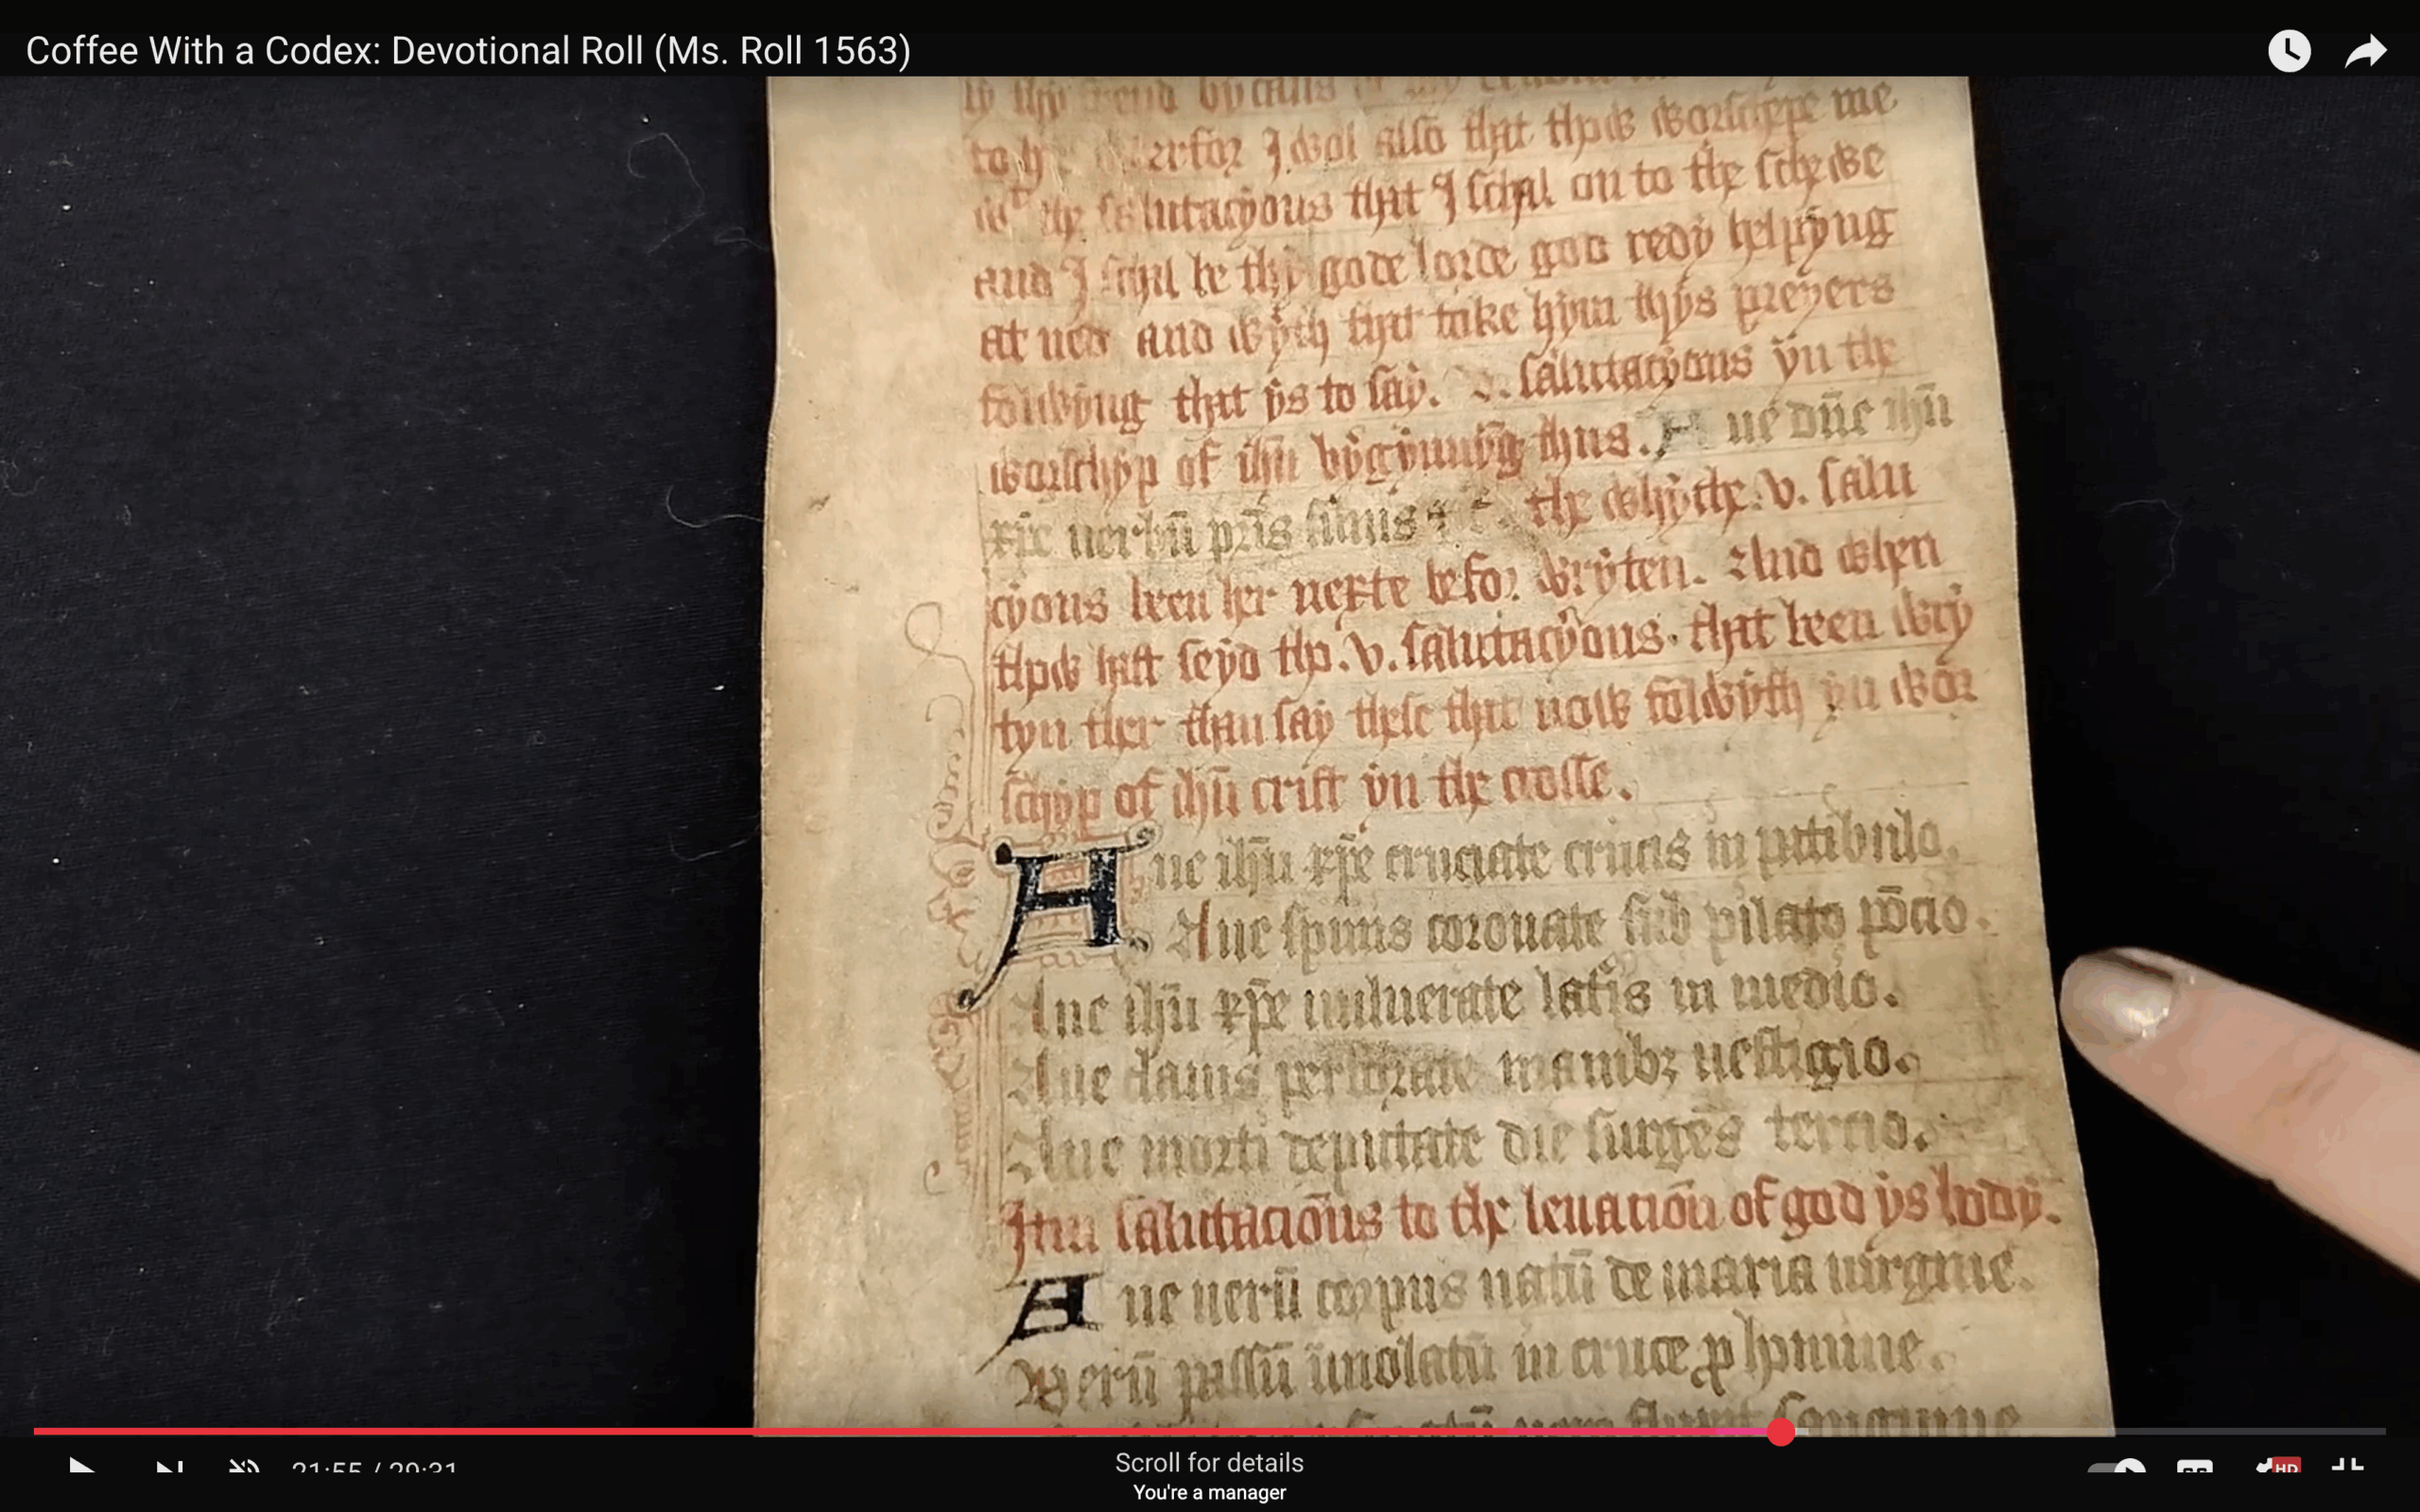 Coffee With a Codex: Devotional Roll (Ms. Roll 1563)
I wol also that thow worschepe me
salutacyons that I schal on to the schewe
and I schal be thy gode lorde god redy helpyng
at ned and wyth that take hym thys preyers
folwyng that ys to say. v. salutacyons yn the
worschyp of ihū bygynnyg thus. Aue dn̄e ihū
xp̄e uerbū pr̄is filius the whyche. v. salu
cyons been her nexte befor wryten. And when
thow hast seyd the .v. salutacyons. that been wry
tyn ther than say these that now folwyth yn wor
schyp of ihū crist yn the crosse.
Aue ihū xp̄e cruciate crucis in patibulo.
Aue spinis coronate sub pilato pōcio.
Aue ihū xp̄e uulnerate lat̄is in medio.
Aue clauis perforate manibꝫ uestigio.
Aue morti deputate die surgēs tercio.
Itm salutacioūs to the leuacioū of god ys body.
Aue uerū corpus natū de maria uirgine.
Uerū passū īmolatū in cruce ꝓ homine.
21:55 / 29:31
Scroll for details
HD
You're a manager